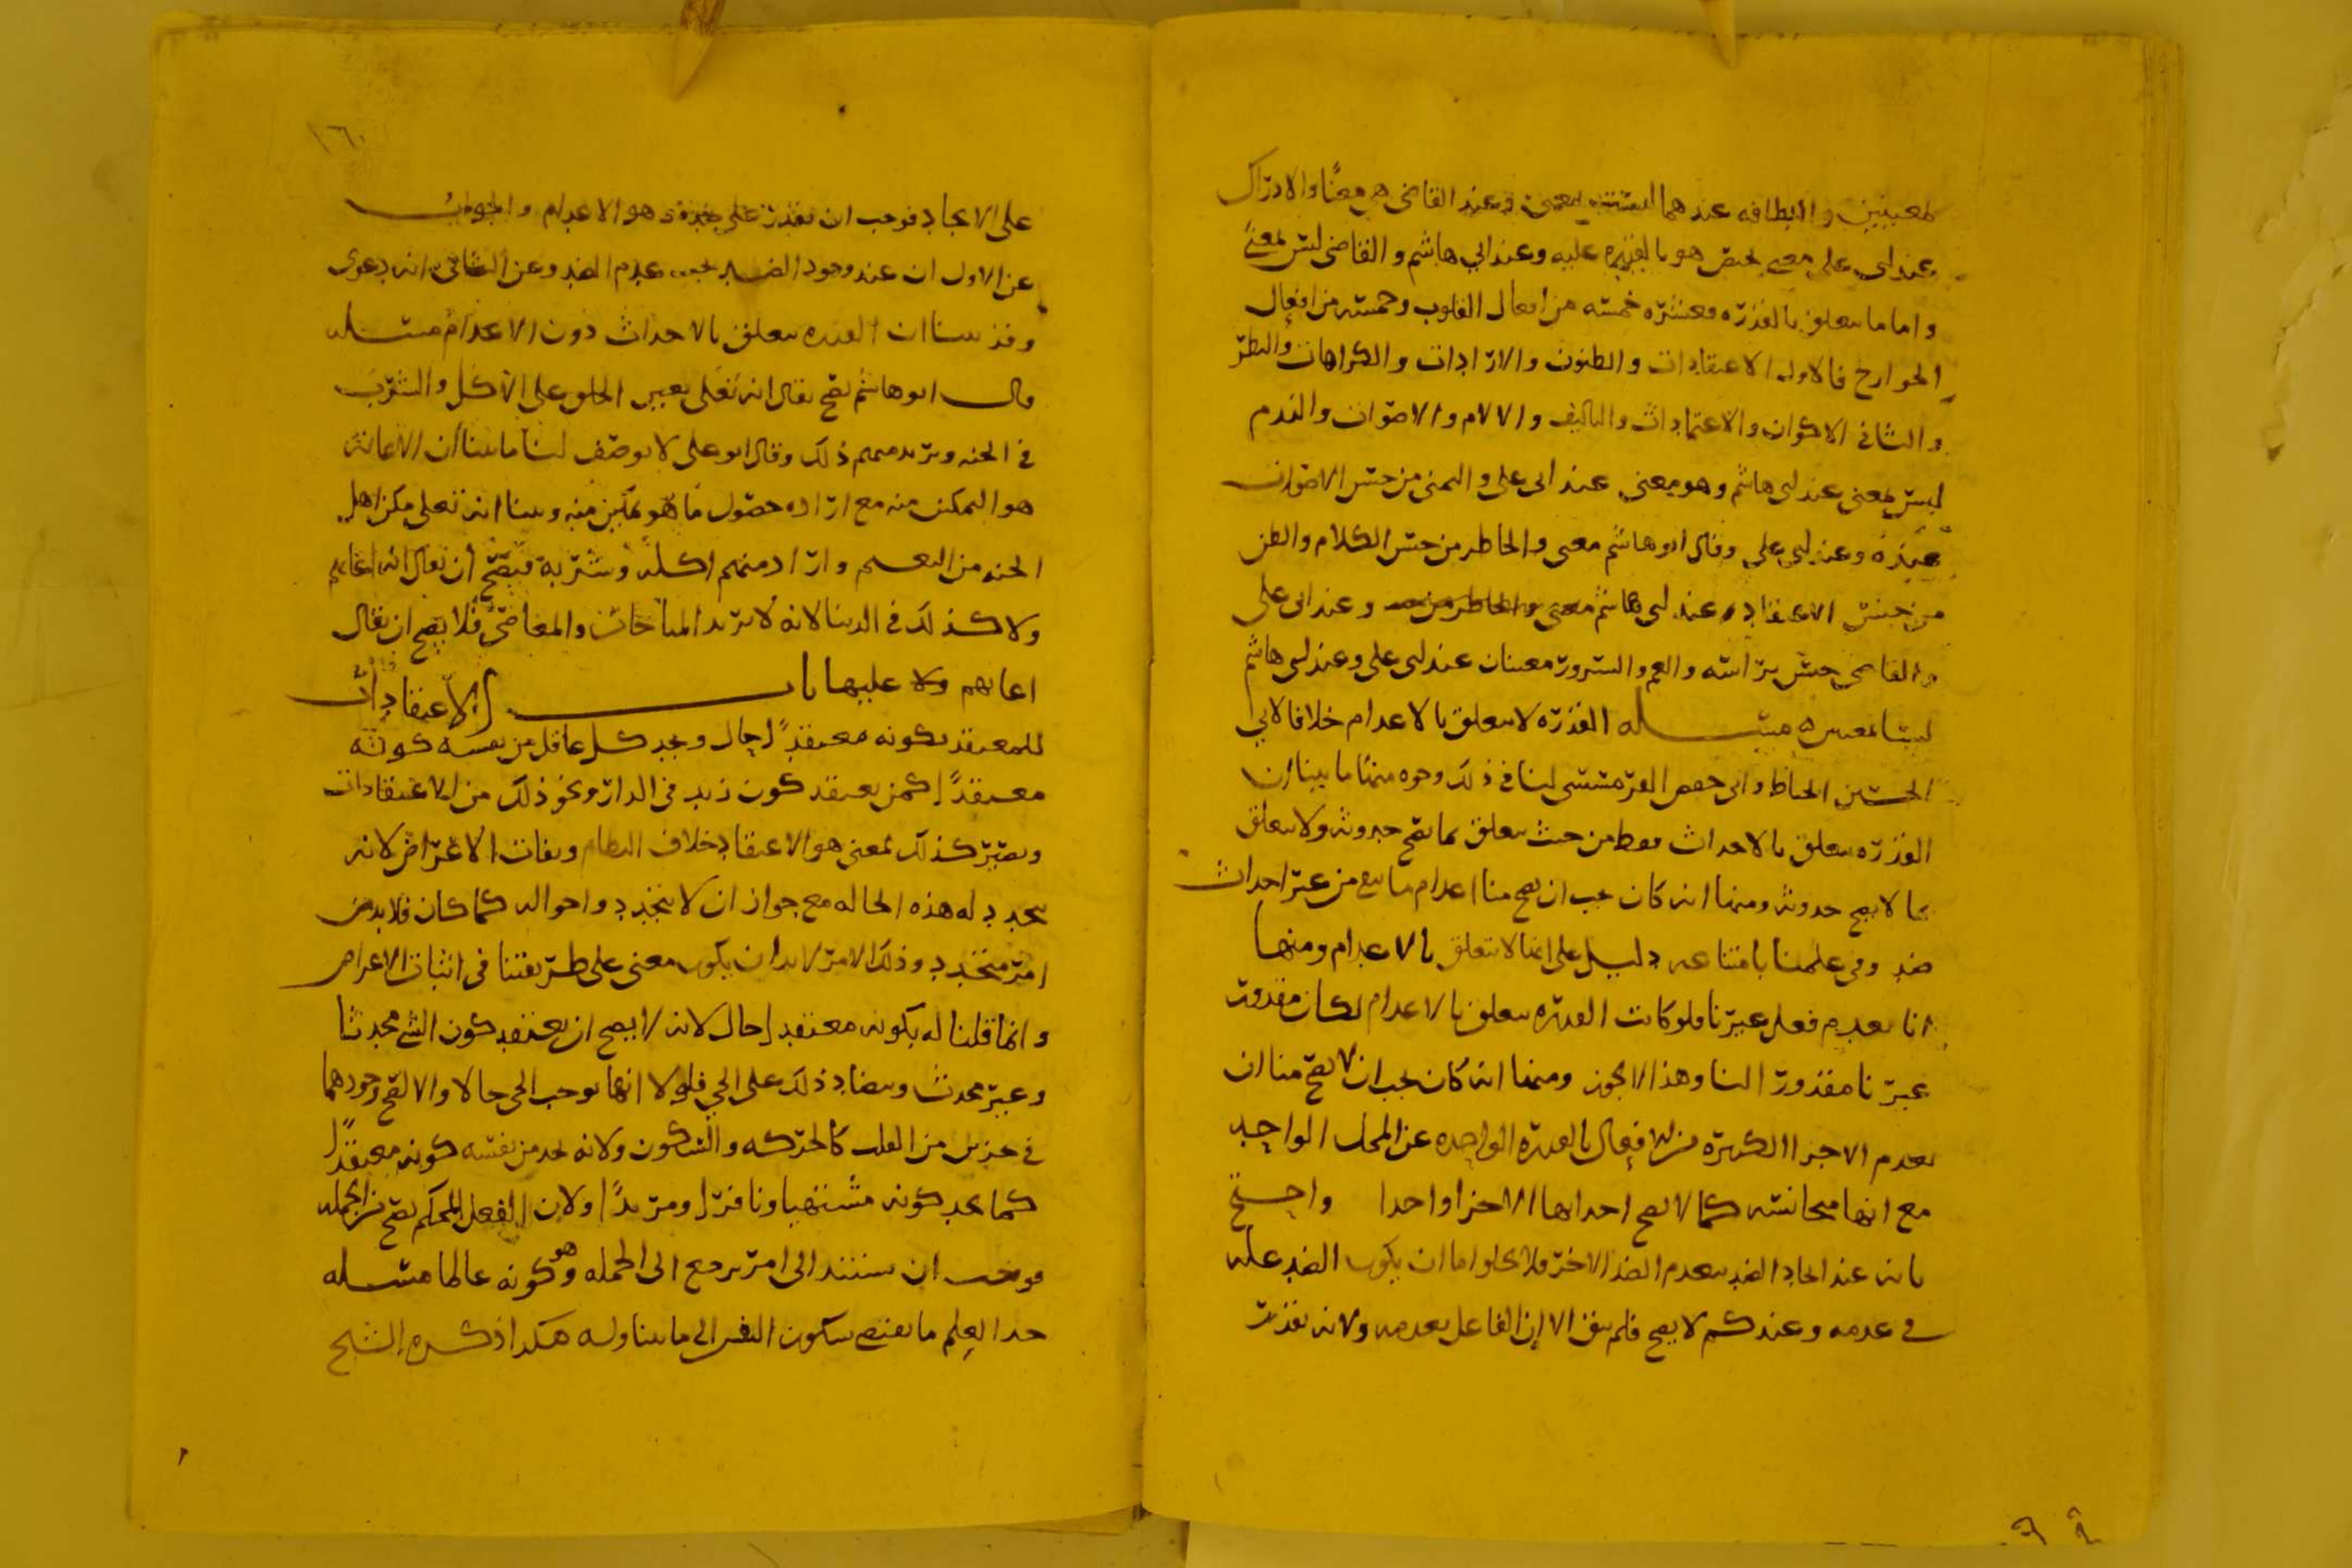 لمعنيين واللطافه عندهما ليست بمعنى وعند القاضي هي معنًا والادراك
عند ابي علي معنى يختص هو بالقدره عليه وعند ابي هاشم والقاضي ليس بمعنى
واما ما يتعلق بالقدرة فعشرة خمسه من افعال القلوب وخمسه من افعال
الجوارح فالاول الاعتقادات والظنون والارادات والكراهات والنظر
والثاني الاكوان والاعتمادات والتاليف والالام والاصوات والندم
ليس بمعنى عند ابي هاشم وهو معنى عند ابي علي والتمني من جنس الاصوات
عنده وعند ابي علي وقال ابو هاشم معنى والخاطر من جنس الكلام والظن
من جنس الاعتقاد عند ابي هاشم وعند ابي علي
والقاضي جنس براسه والغم والسرور معنيان عند ابي علي وعند ابي هاشم
ليسا بمعنيين مسـله القدرة لا يتعلق بالاعدام خلافا لابي
الحسين الخياط وابي حفص القرمسسي لنا في ذلك وجوه منها ما بينا ان
القدره يتعلق بالاحداث فقط من حيث يتعلق بما يصح حدوثه ولا يتعلق
بما لا يصح حدوثه ومنها انه كان يجب ان يصح منا اعدام ما يبقى من غير احداث
ضد وفي علمنا بامتناعه دليل على انها لا يتعلق بالاعدام ومنها
انا نعدم فعل غيرنا فلو كانت القدره يتعلق بالاعدام لكان مقدور
غيرنا مقدورا لنا وهذا لا يجوز ومنها انه كان يجب ان لا يصح منا ان
نعدم الاجزا الكثيرة من الافعال بالقدره الواحده عن المحل الواحد
مع انها متجانسه كما لا يصح احداثها الا جزا واحدا واحتج
بانه عند ايجاد الضد ينعدم الضد الاخر فلا يخلوا اما ان يكون الضد علة
في عدمه وعندكم لا يصح فلم يبق الا ان الفاعل يعدمه ولانه يقدر
١٦٠
على الايجاد فوجب ان يقدر على ضده وهو الاعدام والجواب
عن الاول ان عند وجود الضد يجب عدم الضد وعن الثاني انه دعوى
وقد بينا ان القدره يتعلق بالاحداث دون الاعدام مسـله
قال ابو هاشم يصح يقال انه تعلى يعين الخلق على الاكل والشرب
في الجنه ويريد منهم ذلك وقال ابو علي لا يوصف لنا ما بينا ان الاعانة
هو التمكين منه مع ارادة حصول ما هو تمكين منه وبينا انه تعلى مكن اهل
الجنه من النعيم واراد منهم اكله وشربه فيصح ان يقال انه اعانهم
ولا كذلك في الدنيا لانه لا يريد المباحات والمعاصي فلا يصح ان يقال
اعانهم عليها باب الاعتقادات
للمعتقد بكونه معتقدًا حال ويجد كل عاقل من نفسه كونه
معتقدًا كمن يعتقد كون زيد في الدار ونحو ذلك من الاعتقادات
ويصير كذلك لمعنى هو الاعتقاد خلاف النظام ونفاة الاعراض لانه
يتجدد له هذه الحاله مع جواز ان لا يتجدد واحواله كما كان فلا بد من
امر متجدد وذلك الامر لا بد ان يكون معنى على طريقتنا في اثبات الاعراض
وانما قلنا له بكونه معتقدا حال لانه لا يصح ان يعتقد كون الشي محدثا
وغير محدث ويتضاد ذلك على الحي فلولا انهما يوجب للحي حالا والا لصح وجودهما
في جزئين من القلب كالحركه والسكون ولانه يجد من نفسه كونه معتقدًا
كما يجد كونه مشتهيا ونافرًا ومريدًا ولان الفعل المحكم يصح من الجمله
فوجب ان يستند الى امر يرجع الى الجمله وهو كونه عالما مسـله
حد العلم ما يقتضي سكون النفس الى ما يتناوله هكذا ذكره الشيخ